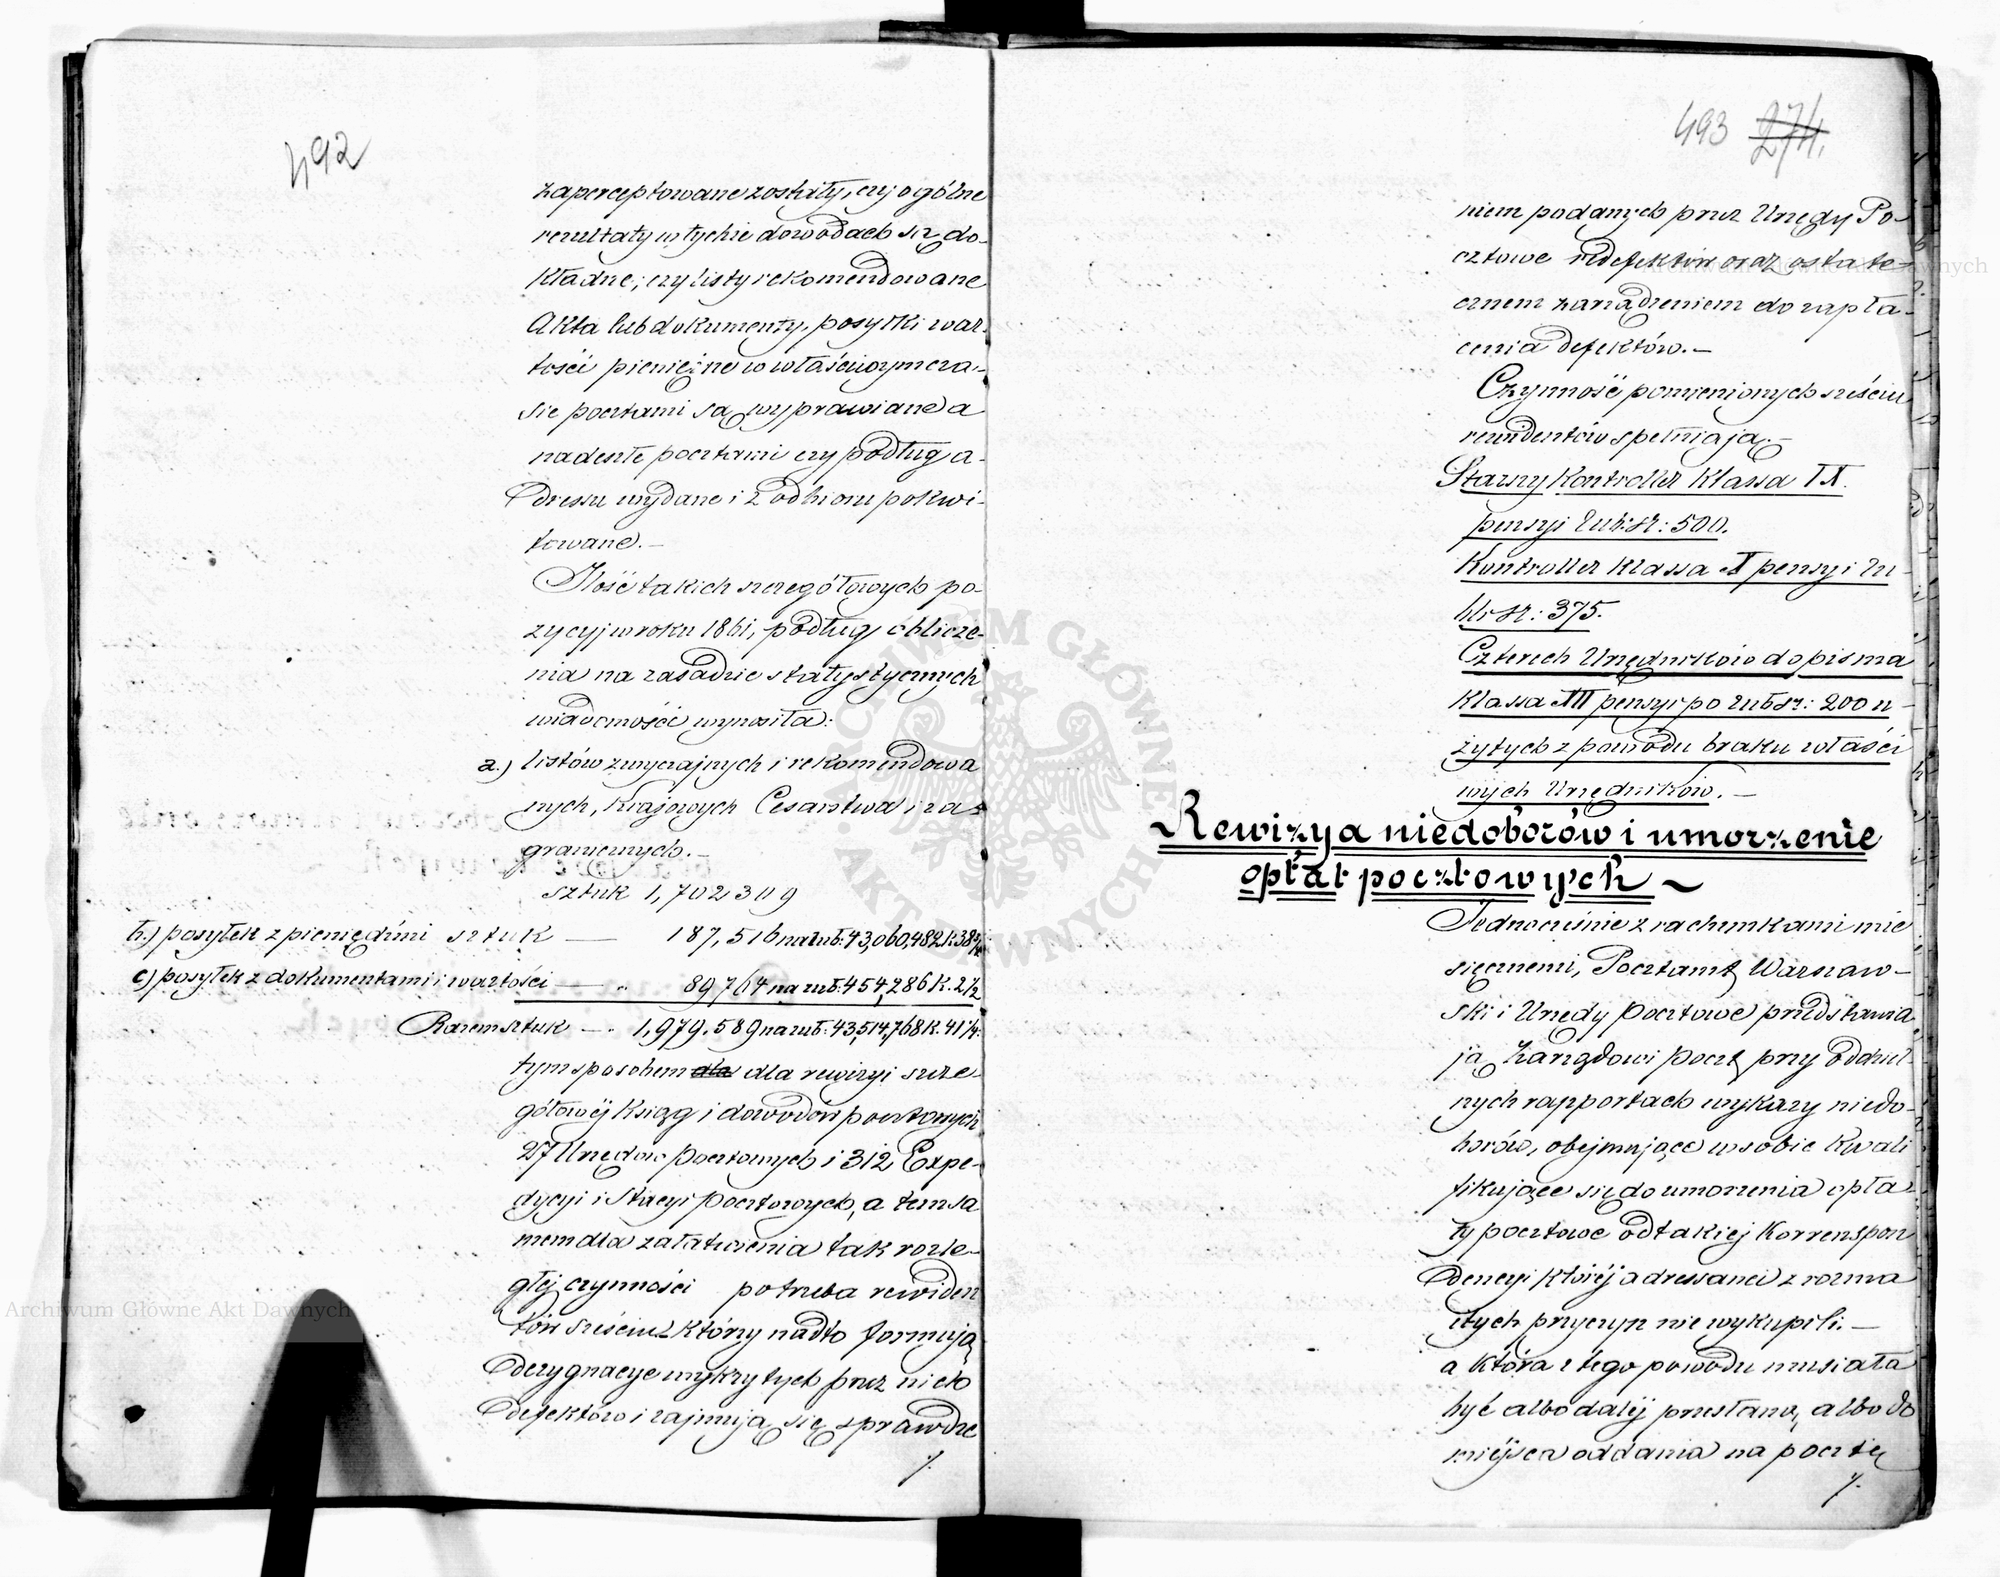 492
zaperceptowane zostały, czy ogólne
rezultaty w tychże dowodach są do-
kładne; czy listy rekomendowane
Akta lub dokumenty, posyłki war-
tości pieniężne w właściwym cza-
sie pocztami są wyprawiane a
nadeszłe pocztami czy podług a-
dressu wydane i z odbioru pokwi-
towane.—
Ilość takich szczegółowych po-
zycyj w roku 1861, podług oblicze-
nia na zasadzie statystycznych
wiadomości wynosiła:
a.) listów zwyczajnych i rekomendowa
nych, Krajowych Cesarstwa i za-
granicznych.—
sztuk 1,702309
b.) posyłek z pieniędzmi sztuk — 187,516 na rub: 43,060,482 k. 38¾
c) posyłek z dokumentami i wartości — „ 89764 na rub: 454,286 k. 2½
Razem sztuk — 1,979.589 na rub: 43,514,768 k. 41¼.
tym sposobem dla dla rewizyi szcze-
gółowéj Ksiąg i dowodów pocztowych
27 Urzędów pocztowych i 312 Expe-
dycyi i Stacyi pocztowych, a tem sa
mem dla załatwienia tak rozle-
głéj czynności potrzeba rewiden
tów sześciu którzy nadto formują
dezygnacye wykrytych przez nich
defektów i zajmują się sprawdze
./.
493 274.
niem podanych przez Urzędy Po-
cztowe redefektów oraz ostate-
cznem zarządzeniem do zapła-
cenia defektów.—
Czynność pomienionych sześciu
rewidentów spełniają.—
Starszy Kontroller Klassa IX.
pensyi rub: sr: 500.
Kontroller Klassa X pensyi ru-
bli sr: 375.
Czterech Urzędników do pisma
Klassa XII pensyi po rub sr: 200 u-
żytych z powodu braku właści
wych Urzędników.—
Rewizya niedoborów i umorzenie
opłat pocztowych —
Jednocześnie z rachunkami mie
sięcznemi, Pocztamt Warszaw-
ski i Urzędy pocztowe przedstawia
ją Zarządowi poczt przy oddziel
nych rapportach wykazy niedo-
borów, obejmujące w sobie Kwali
fikujące się do umorzenia opła-
ty pocztowe od takiej Korrespon
dencyi któréj adressanci z rozma
itych przyczyn nie wykupili.—
a która z tego powodu musiała
być albo daléj przesłana, albo do
miéjsca oddania na pocztę
./.
Archiwum Główne Akt Dawnych
Archiwum Główne Akt Dawnych
ARCHIWUM GŁÓWNE AKT DAWNYCH